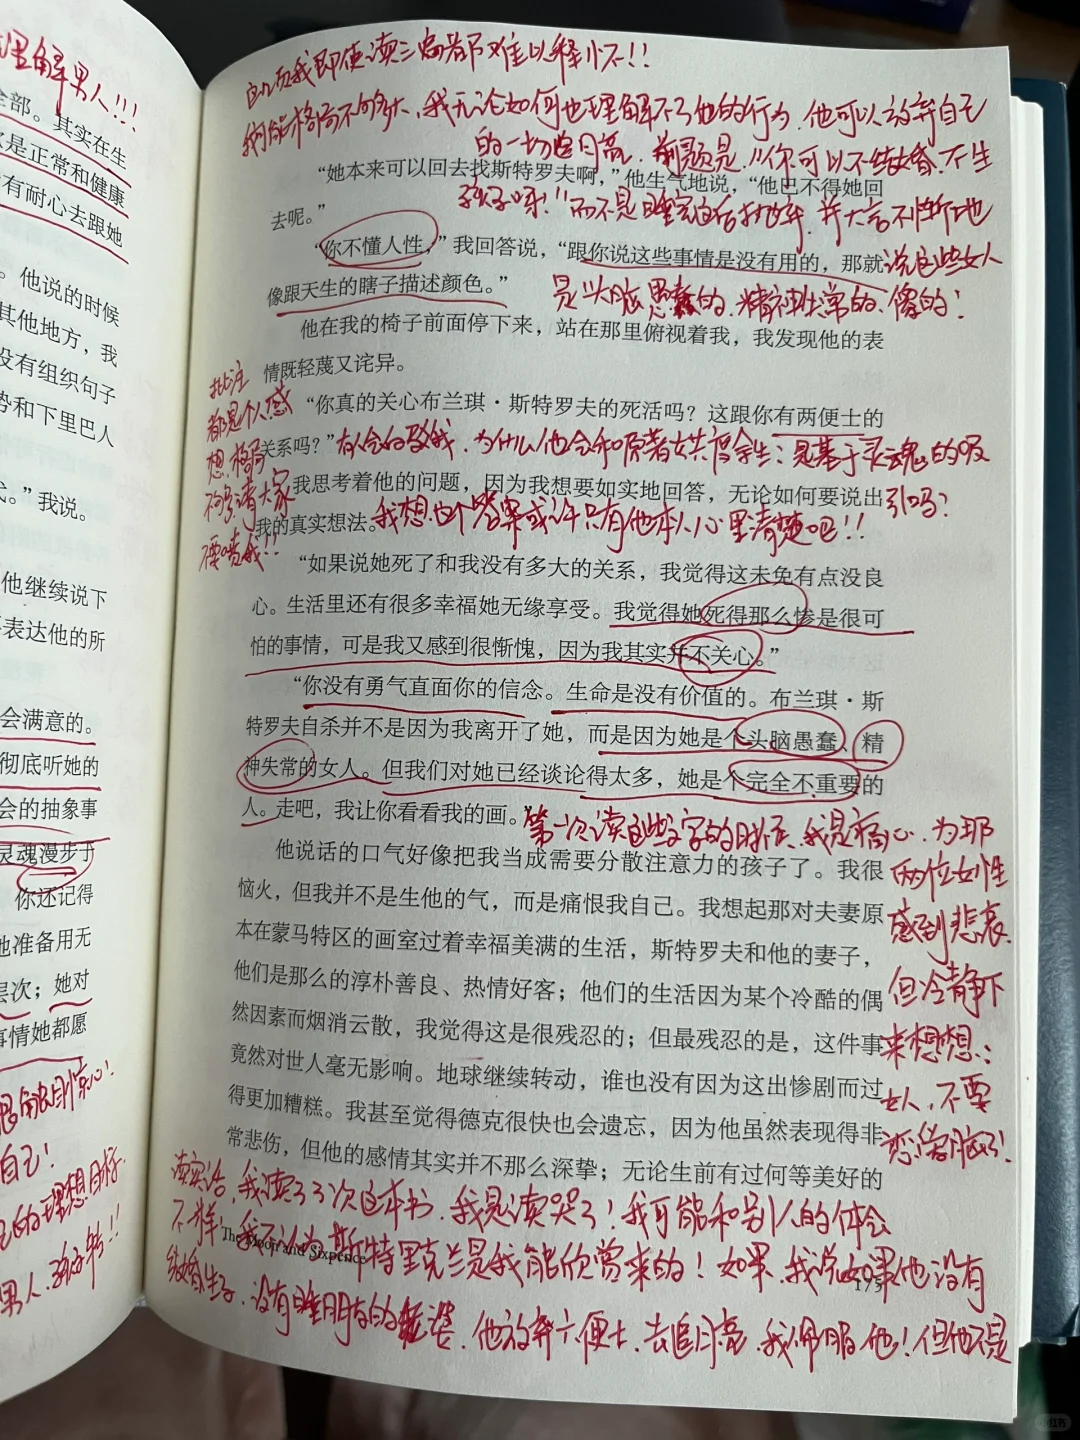 理解男人!!!
全部。其实在生
是正常和健康
有耐心去跟她
。他说的时候
其他地方，我
没有组织句子
势和下里巴人
。”我说。
他继续说下
表达他的所
会满意的。
彻底听她的
会的抽象事
灵魂漫步于
你还记得
她准备用无
层次；她对
事情她都愿
自己!
的理想
男人
这几页我即使读三遍都难以释怀!!
我可能格局不够大、我无论如何也理解不了他的行为、他可以放弃自己
的一切追月亮、前题是,“你可以不结婚、不生
孩子呀!”而不是睡完白后抛弃、并大言不惭地
说这些女人
是头脑愚蠢的、精神失常的、傻的!
“她本来可以回去找斯特罗夫啊，”他生气地说，“他巴不得她回
去呢。”
“你不懂人性，”我回答说，“跟你说这些事情是没有用的，那就
像跟天生的瞎子描述颜色。”
他在我的椅子前面停下来，站在那里俯视着我，我发现他的表
情既轻蔑又诧异。
批注
都是个人感
想、格局
不够请大家
不要喷我!!
“你真的关心布兰琪·斯特罗夫的死活吗？这跟你有两便士的
关系吗？”
有人会反驳我、为什么他会和原著女共度余生；是基于灵魂的吸
引吗?
我思考着他的问题，因为我想要如实地回答，无论如何要说出
我的真实想法。
我想这个答案或许只有他本人心里清楚吧!!
“如果说她死了和我没有多大的关系，我觉得这未免有点没良
心。生活里还有很多幸福她无缘享受。我觉得她死得那么惨是很可
怕的事情，可是我又感到很惭愧，因为我其实并不关心。”
“你没有勇气直面你的信念。生命是没有价值的。布兰琪·斯
特罗夫自杀并不是因为我离开了她，而是因为她是个头脑愚蠢、精
神失常的女人。但我们对她已经谈论得太多，她是个完全不重要的
人。走吧，我让你看看我的画。”
第一次读这些文字的时候、我是痛心、为那
两位女性
感到悲哀、
但冷静下
来想想:
女人、不要
恋爱脑了!
他说话的口气好像把我当成需要分散注意力的孩子了。我很
恼火，但我并不是生他的气，而是痛恨我自己。我想起那对夫妻原
本在蒙马特区的画室过着幸福美满的生活，斯特罗夫和他的妻子，
他们是那么的淳朴善良、热情好客；他们的生活因为某个冷酷的偶
然因素而烟消云散，我觉得这是很残忍的；但最残忍的是，这件事
竟然对世人毫无影响。地球继续转动，谁也没有因为这出惨剧而过
得更加糟糕。我甚至觉得德克很快也会遗忘，因为他虽然表现得非
常悲伤，但他的感情其实并不那么深挚；无论生前有过何等美好的
读实话、我读了3次这本书、我是读哭了!我可能和别人的体会
不一样!我不认为斯特里克兰是我能欣赏来的!如果、我说如果他没有
结婚生子、没有睡朋友的老婆、他放弃六便士、去追月亮、我佩服他!但他不是
The Moon and Sixpence
173
小红书